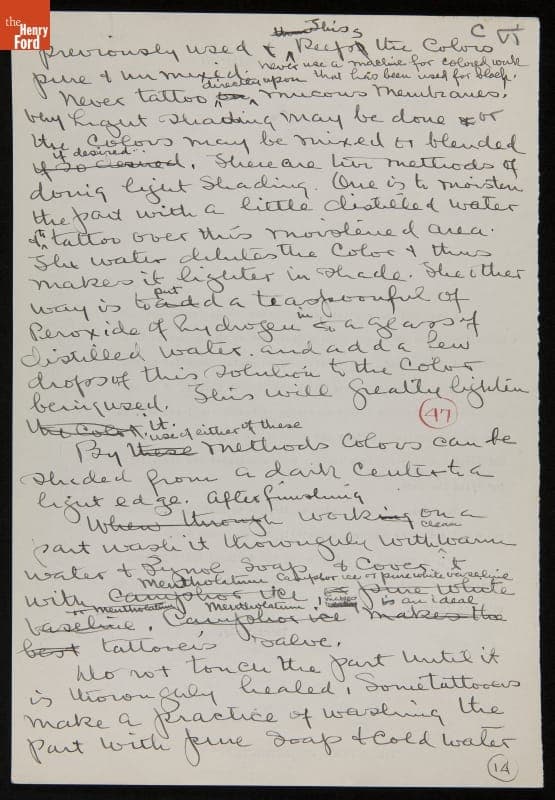 the
Henry
Ford
C VI
this
previously used & Keeps the Colors
pure & unmixed. never use a machine for colored work
directly upon that has been used for black.
Never tattoo on mucous membranes.
Very Light Shading may be done or
the Colors may be mixed or blended
if desired
if so desired. There are two methods of
doing light Shading. One is to moisten
the part with a little distilled water
& to tattoo over this moistened area.
The water dilutes the Color & thus
makes it lighter in shade. The other
put
way is to add a teaspoonful of
Peroxide of hydrogen in to a glass of
distilled water. and add a few
drops of this solution to the Color
being used. This will greatly lighten
47
the Color it.
use of either of these
By these methods Colors can be
shaded from a dark center to a
light edge. After finishing
When through working on a
clean
part wash it thoroughly with warm
water & Soap & Cover it
Mentholatum Camphor ice or pure white vaseline
with Camphor ice or pure white
or mentholatum Mentholatum makes is an ideal
vaseline. Camphor ice makes the
best tattooers salve.
Do not touch the part until it
is thoroughly healed. Some tattooers
make a practice of washing the
part with pure soap & cold water
14